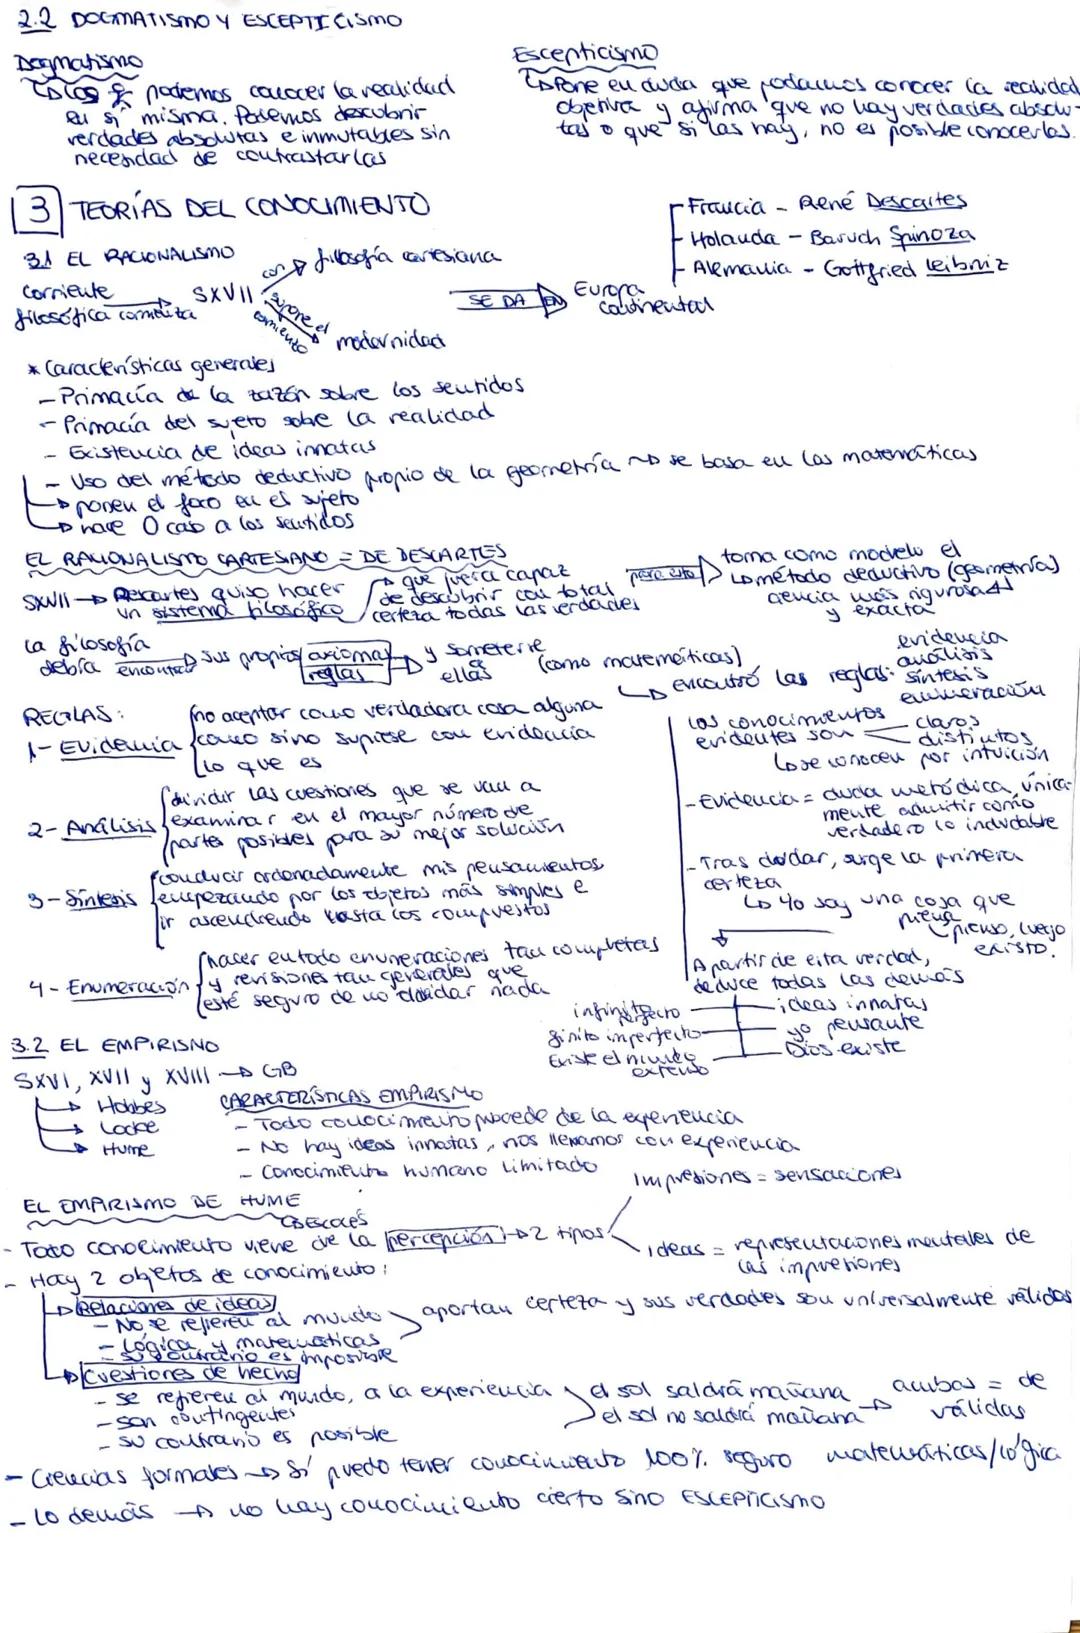 2.2 DOGMATISMO Y ESCEPTICISMO
Dogmatismo
podemos conocer la realidad
en sí misma. Podemos descubrir
verdades absolutas e inmutables sin
necesidad de contrastarlas
Escepticismo
↳ Pone en duda que podamos conocer la realidad
objetiva y afirma que no hay verdades absolu-
tas o que si las hay, no es posible conocerlas.
3 TEORÍAS DEL CONOCIMIENTO
- Francia - René Descartes
- Holanda - Baruch Spinoza
- Alemania - Gottfried Leibniz
3.1 EL RACIONALISMO
corriente
filosófica comienza → SXVII
con → filosofía cartesiana
supone el
comienzo → modernidad
SE DA EN → Europa
continental
* Características generales
- Primacía de la razón sobre los sentidos
- Primacía del sujeto sobre la realidad
- Existencia de ideas innatas
- Uso del método deductivo propio de la geometría → se basa en las matemáticas
→ ponen el foco en el sujeto
→ hace 0 caso a los sentidos
EL RACIONALISMO CARTESIANO = DE DESCARTES
SXVII → Descartes quiso hacer
un sistema filosófico
→ que fuera capaz
de descubrir con total
certeza todas las verdades
para esto → toma como modelo el
↳ método deductivo (geometría)
ciencia más rigurosa
y exacta
la filosofía
debía encontrar → sus propios axiomas
reglas → y someterse
a ellas
(como matemáticas)
↳ encontró las reglas: evidencia
análisis
síntesis
enumeración
REGLAS:
1- Evidencia {no aceptar como verdadera cosa alguna
como sino supiese con evidencia
lo que es
2- Análisis {dividir las cuestiones que se van a
examinar en el mayor número de
partes posibles para su mejor solución
3- Síntesis {conducir ordenadamente mis pensamientos
empezando por los objetos más simples e
ir ascendiendo hasta los compuestos
4- Enumeración {hacer en todo enumeraciones tan completas
y revisiones tan generales que
esté seguro de no olvidar nada
los conocimientos
evidentes son < claros
distintos
↳ se conocen por intuición
- Evidencia = duda metódica, única-
mente admitir como
verdadero lo indudable
- Tras dudar, surge la primera
certeza
↳ Yo soy una cosa que
piensa
↳ pienso, luego
existo.
A partir de esta verdad,
deduce todas las demás
infinito perfecto - ideas innatas
finito imperfecto - yo pensante
Existe el mundo - Dios existe
externo
3.2 EL EMPIRISMO
SXVI, XVII y XVIII → GB
→ Hobbes
→ Locke
→ Hume
CARACTERÍSTICAS EMPIRISMO
- Todo conocimiento procede de la experiencia
- No hay ideas innatas, nos llenamos con experiencia
- Conocimiento humano limitado
EL EMPIRISMO DE HUME
↳ ESCOCÉS
- Todo conocimiento viene de la percepción → 2 tipos:
Impresiones = sensaciones
ideas = representaciones mentales de
las impresiones
- Hay 2 objetos de conocimiento:
→ Relaciones de ideas
- No se refieren al mundo
- Lógica y matemáticas
- su contrario es imposible
aportan certeza y sus verdades son universalmente válidas
→ Cuestiones de hecho
- se refieren al mundo, a la experiencia
- son contingentes
- su contrario es posible
el sol saldrá mañana
el sol no saldrá mañana → ambas = de
válidas
- Ciencias formales → Sí puedo tener conocimiento 100% seguro matemáticas/lógica
- Lo demás → no hay conocimiento cierto sino ESCEPTICISMO